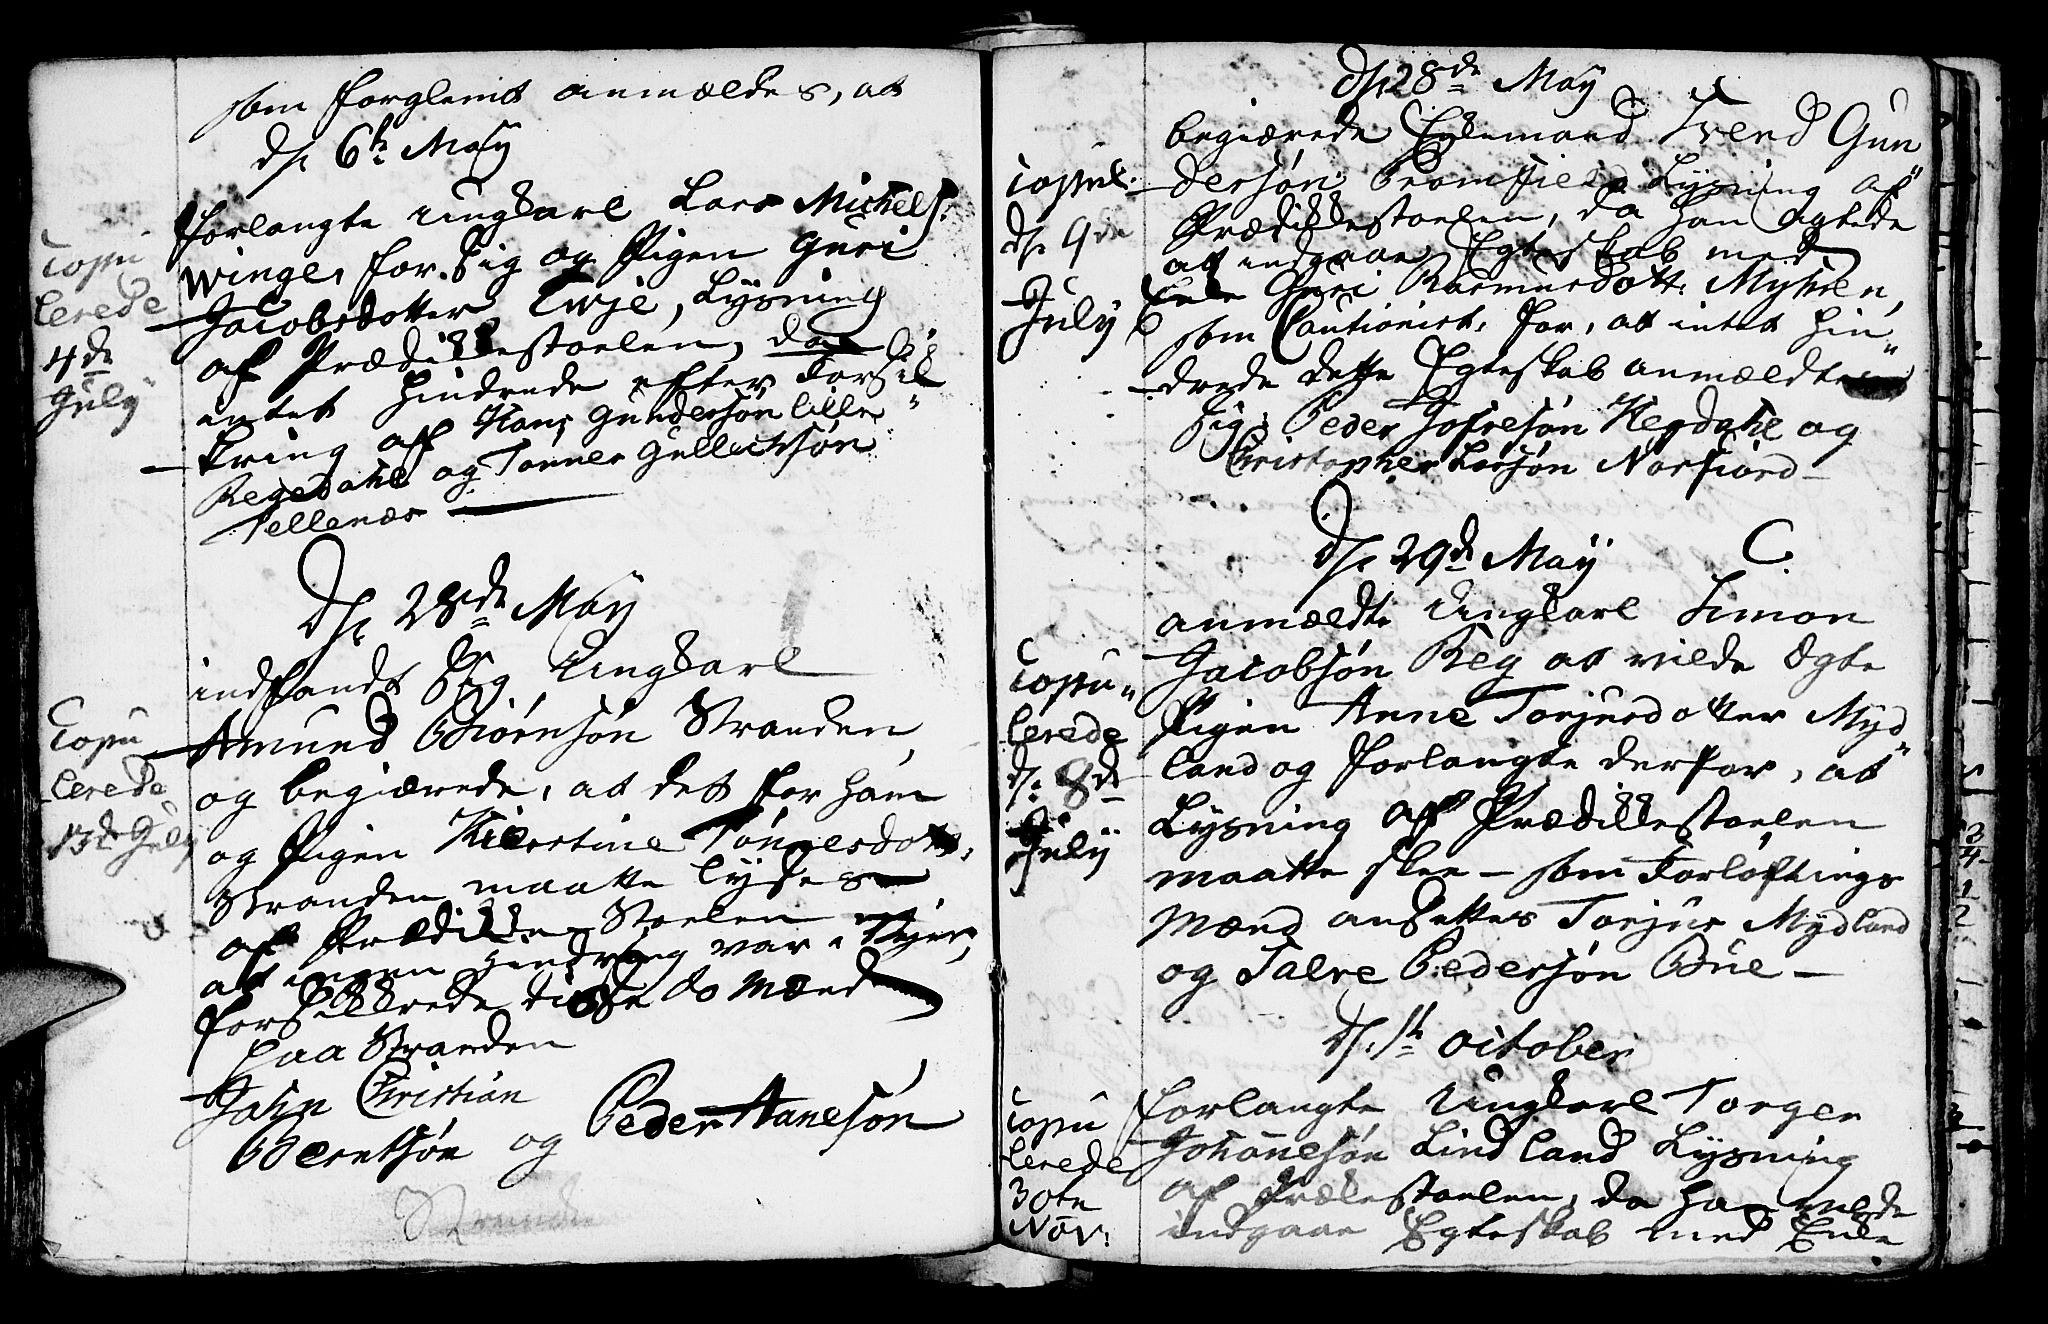 som forglemt anmældes, at
d. 6te May
Copu
lerede
4de
July
forlangte Ungkarl Lars Michels:
Winge, for sig og Pigen Guri
Jacobsdotter Twje, Lysning
af Prædikkestoelen, da
intet hindrede efter Forsik"
kring af Hans Gundersøn lille
Regedahl og Tonnes Gullichsøn
Tellenæs
D. 28de May
Copu
lerede
13de July
indfandt sig Ungkarl
Amund Biørnsøn Stranden
og begiærede, at det for ham
og Pigen Kierstine Tønnesdott:
Stranden maatte lyses
af Prædikke-Stoelen
at ingen Hindring var i Vejen,
forsikkrede disse to Mænd
paa Stranden
John Christian
Berntsøn og Peder Hanesøn
Strande
d. 28de May
Copul:
d. 9de
July
begiærede Enkemand Tvend Gun"
dersøn Promsfield Lysning af
Prædikkestoelen, da han agtede
at indgaae Egteskab med
Enke Guri Rasmusdott: Myhren,
som Cautionist: for, at intet hin"
drede dette Egteskab anmældte
sig: Peder Jofresøn Hegdahl og
Christopher Larsøn Norfiord
d. 29de May C.
Copu"
lerede
d: 8de
July
anmældte Ungkarl Simon
Jacobsøn Reg at vilde Egte
Pigen Anne Torjusdotter Myd"
land og forlangte derfor, at
Lysning af Prædikkestoelen
maatte skee - som Forløftnings
Mænd ansættes Torjus Mydland
og Salve Pedersøn Bue -
d. 1te october
Copu
lerede
30te
Nov:
forlangte Ungkarl Torger
Johannesøn Lindland Lysning
af Prækestoelen, da han vilde
indgaae Egteskab med Enke